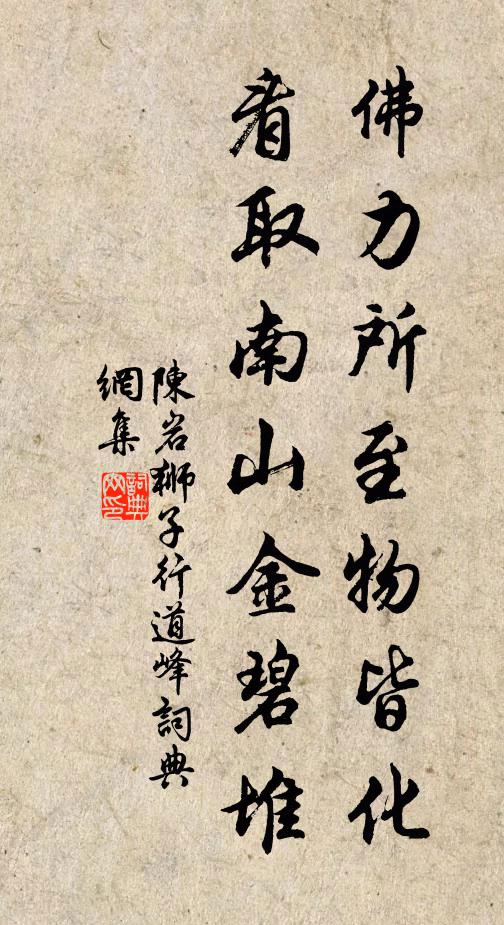 佛力所至物皆化
看取南山金碧堆
陳岩獅子行道峰詞典
網集
詞典
网印